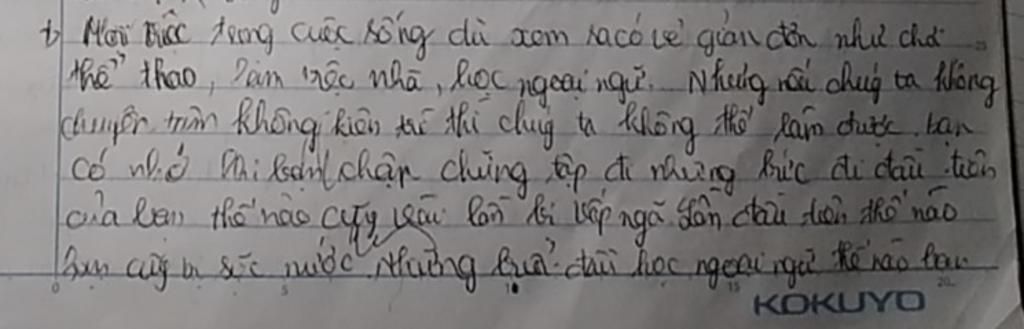 b) Mọi việc trong cuộc sống dù xem ra có vẻ giản đơn như chơi
thể thao, làm việc nhà, học ngoại ngữ. Nhưng nếu chúng ta không
chuyên tâm không kiên trì thì chúng ta không thể làm được. bạn
có nhớ khi bạn chập chững tập đi những bước đi đầu tiên
của bạn thế nào cũng vài lần bị vấp ngã lần đầu tiên thế nào
bạn cũng bị sặc nước Những buổi đầu học ngoại ngữ thế nào bạn
KOKUYO